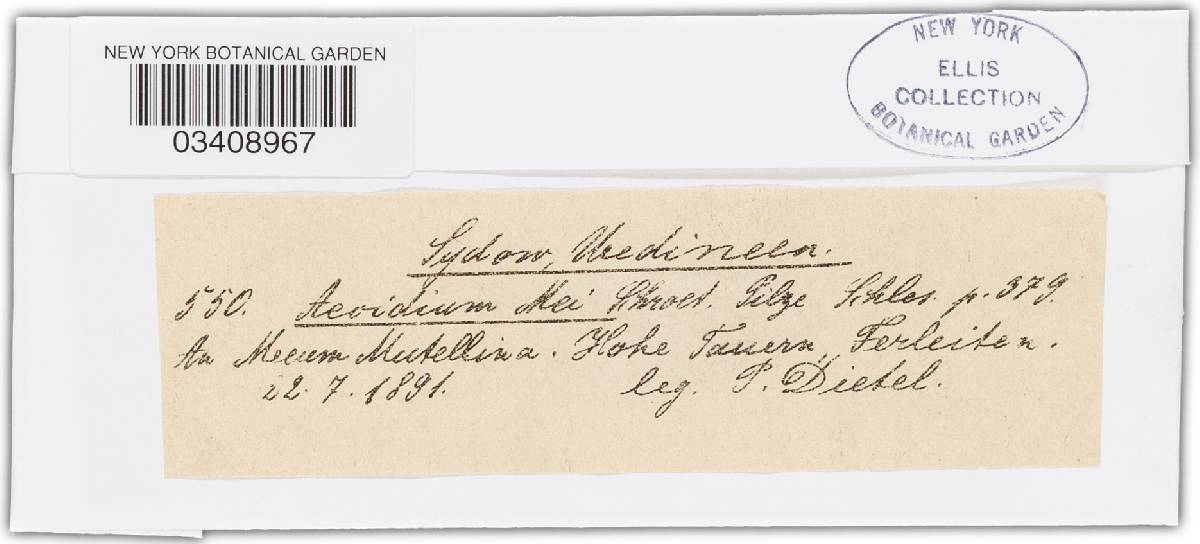 NEW YORK BOTANICAL GARDEN
03408967
NEW YORK
ELLIS
COLLECTION
BOTANICAL GARDEN
Sydow, Uredineen.
550. Aecidium Mei Schroet. Pilze Schles. p. 379.
An Meeum Mutellina. Hohe Tauern, Ferleiten.
22. 7. 1891. leg. P. Dietel.